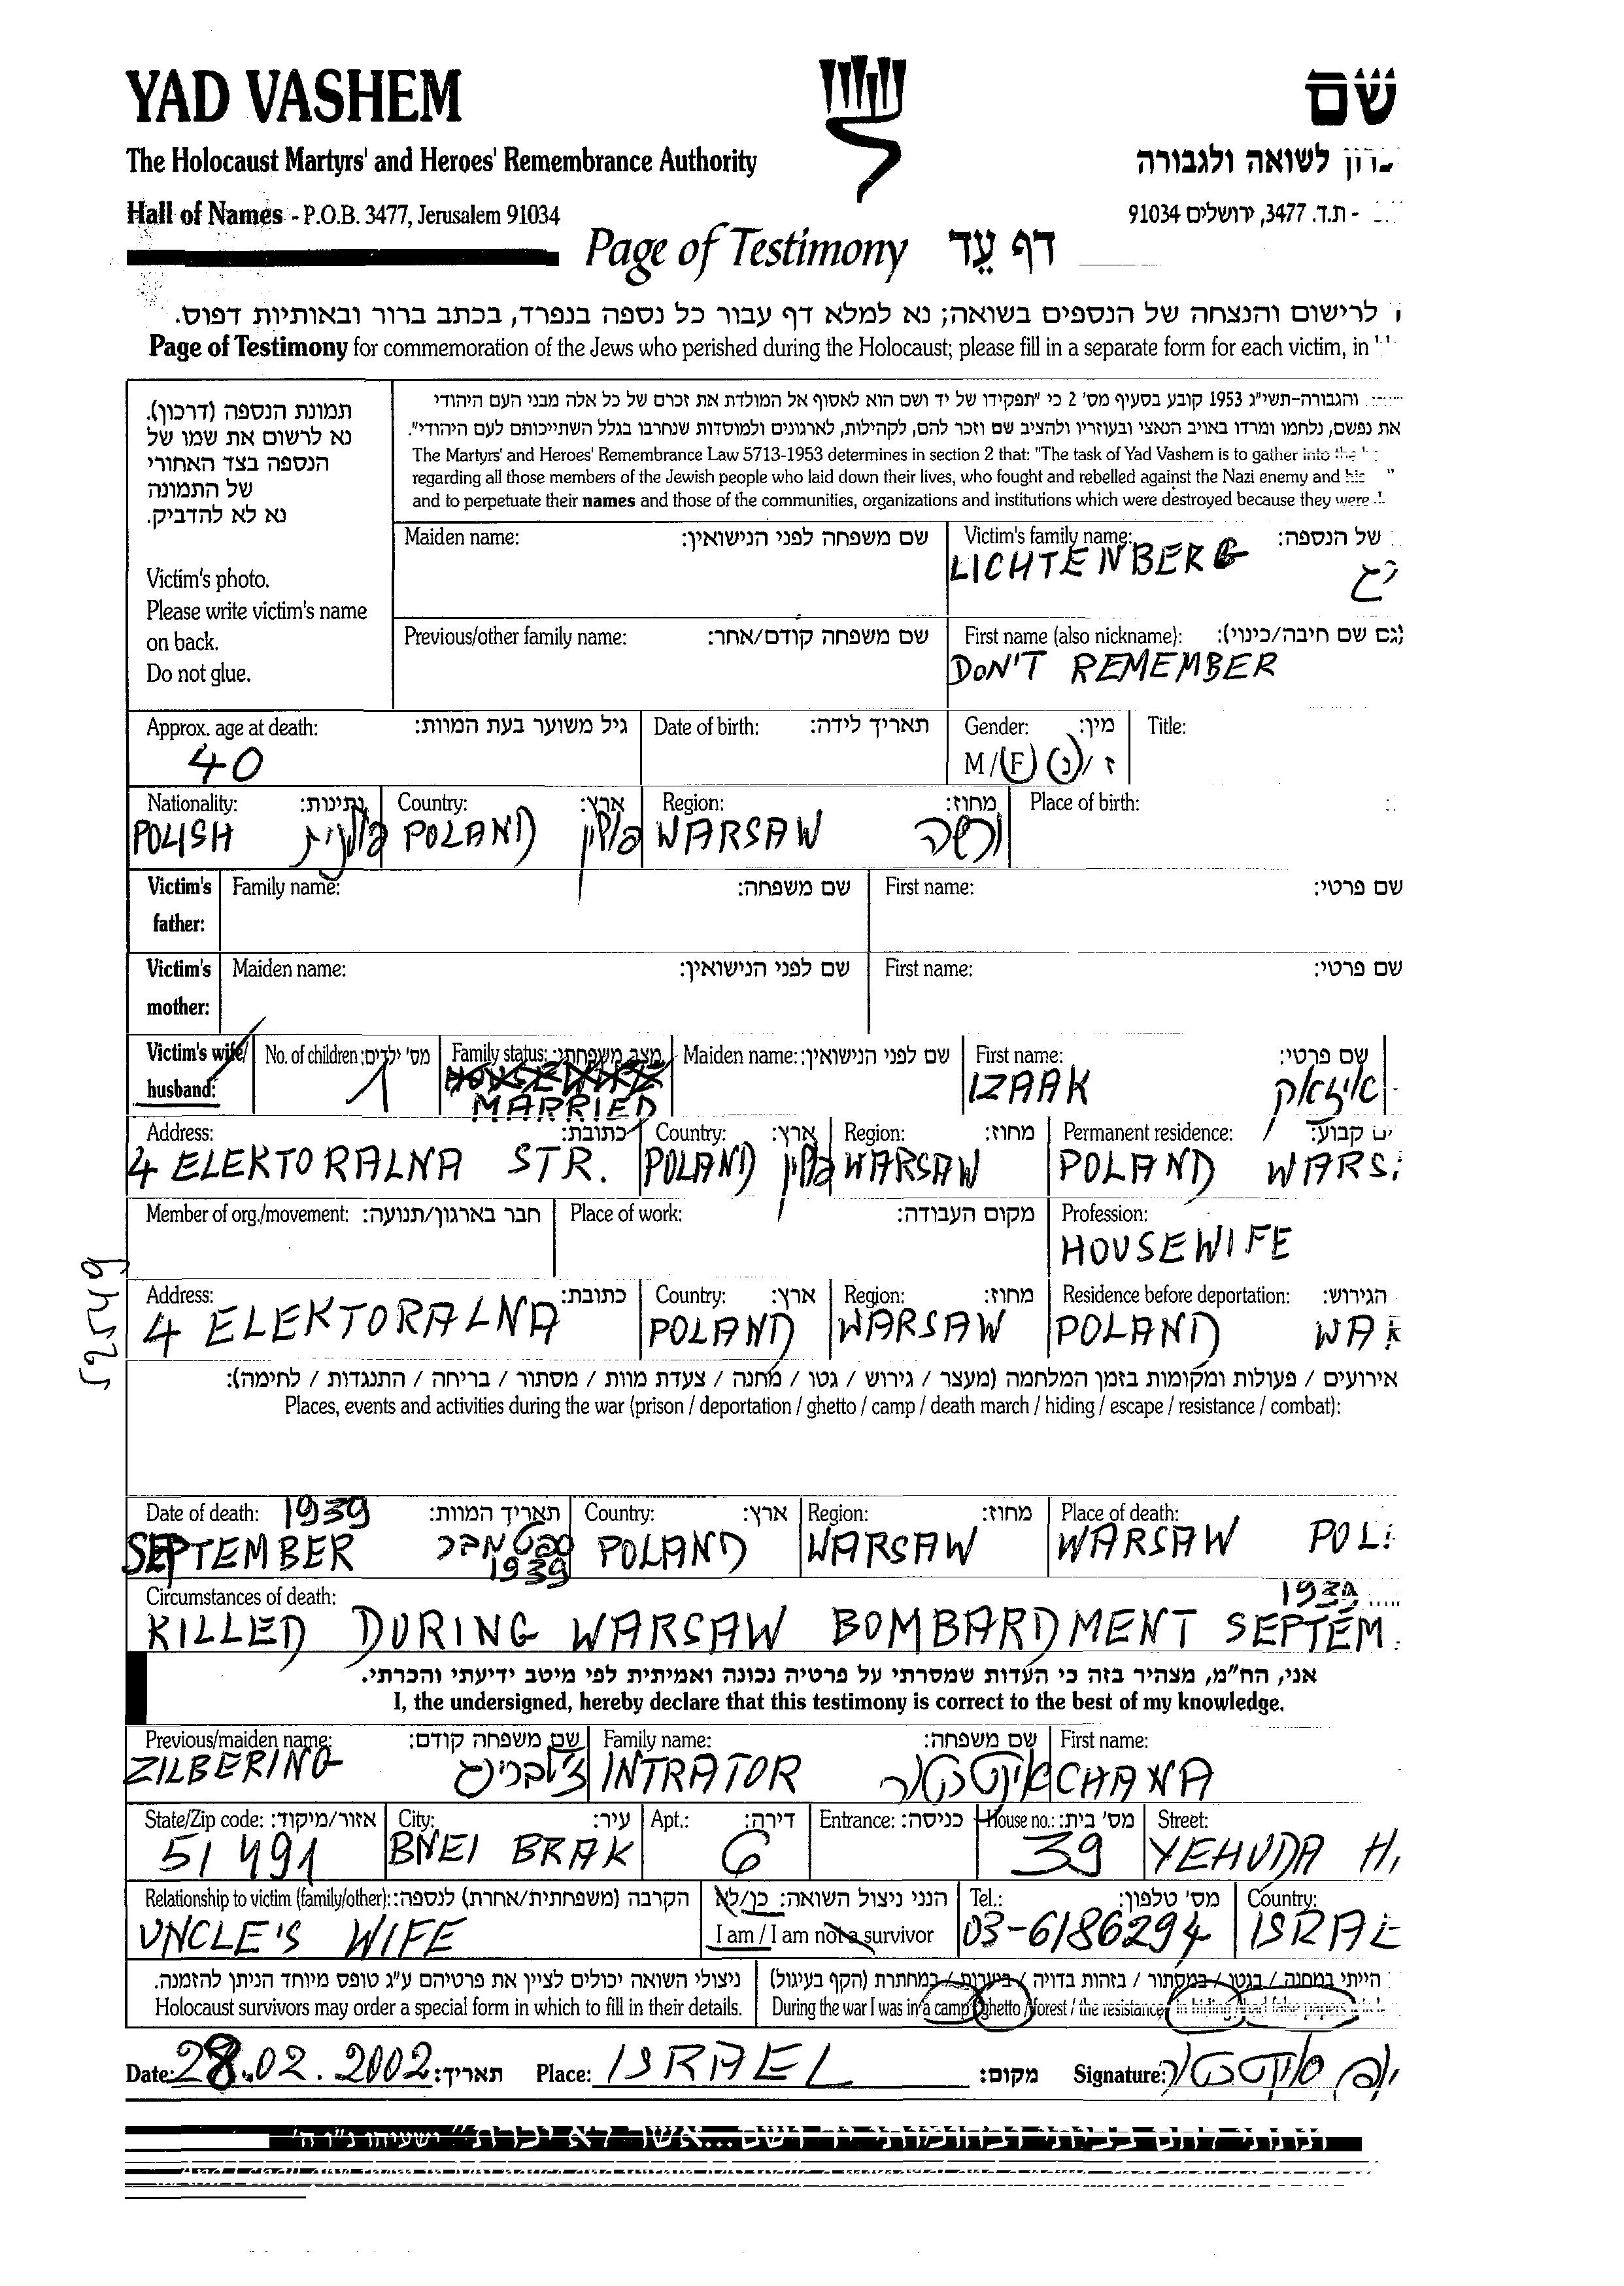 YAD VASHEM
שם
The Holocaust Martyrs' and Heroes' Remembrance Authority
לשואה ולגבורה
Hall of Names - P.O.B. 3477, Jerusalem 91034
- ת.ד. 3477, ירושלים 91034
Page of Testimony דף עֵד
לרישום והנצחה של הנספים בשואה; נא למלא דף עבור כל נספה בנפרד, בכתב ברור ובאותיות דפוס.
Page of Testimony for commemoration of the Jews who perished during the Holocaust; please fill in a separate form for each victim, in
תמונת הנספה (דרכון).
נא לרשום את שמו של
הנספה בצד האחורי
של התמונה
נא לא להדביק.
Victim's photo.
Please write victim's name
on back.
Do not glue.
והגבורה-תשי"ג 1953 קובע בסעיף מס' 2 כי "תפקידו של יד ושם הוא לאסוף אל המולדת את זכרם של כל אלה מבני העם היהודי
את נפשם, נלחמו ומרדו באויב הנאצי ובעוזריו ולהציב שם וזכר להם, לקהילות, לארגונים ולמוסדות שנחרבו בגלל השתייכותם לעם היהודי".
The Martyrs' and Heroes' Remembrance Law 5713-1953 determines in section 2 that: "The task of Yad Vashem is to gather into the
regarding all those members of the Jewish people who laid down their lives, who fought and rebelled against the Nazi enemy and his
and to perpetuate their names and those of the communities, organizations and institutions which were destroyed because they were
Maiden name: שם משפחה לפני הנישואין:
Victim's family name: של הנספה:
LICHTENBERG
Previous/other family name: שם משפחה קודם/אחר:
First name (also nickname): (גם שם חיבה/כינוי):
DON'T REMEMBER
Approx. age at death: גיל משוער בעת המוות:
40
Date of birth: תאריך לידה:
Gender: מין:
M / F ז / נ
Title:
Nationality: נתינות:
POLISH פולנית
Country: ארץ:
POLAND פולין
Region: מחוז:
WARSAW ורשה
Place of birth:
Victim's father:
Family name: שם משפחה:
First name: שם פרטי:
Victim's mother:
Maiden name: שם לפני הנישואין:
First name: שם פרטי:
Victim's wife/
husband:
No. of children: מס' ילדים:
1
Family status: מצב משפחתי:
HOUSEWIFE
MARRIED
Maiden name: שם לפני הנישואין:
First name: שם פרטי:
IZAAK איזאק
Address: כתובת:
4 ELEKTORALNA STR.
Country: ארץ:
POLAND פולין
Region: מחוז:
WARSAW
Permanent residence: קבוע:
POLAND WARS
Member of org./movement: חבר בארגון/תנועה:
Place of work: מקום העבודה:
Profession:
HOUSEWIFE
Address: כתובת:
4 ELEKTORALNA
Country: ארץ:
POLAND
Region: מחוז:
WARSAW
Residence before deportation: הגירוש:
POLAND WAR
אירועים / פעולות ומקומות בזמן המלחמה (מעצר / גירוש / גטו / מחנה / צעדת מוות / מסתור / בריחה / התנגדות / לחימה):
Places, events and activities during the war (prison / deportation / ghetto / camp / death march / hiding / escape / resistance / combat):
Date of death: 1939 תאריך המוות:
SEPTEMBER ספטמבר
1939
Country: ארץ:
POLAND
Region: מחוז:
WARSAW
Place of death:
WARSAW POL
Circumstances of death:
1939
KILLED DURING WARSAW BOMBARDMENT SEPTEM
אני, הח"מ, מצהיר בזה כי העדות שמסרתי על פרטיה נכונה ואמיתית לפי מיטב ידיעתי והכרתי.
I, the undersigned, hereby declare that this testimony is correct to the best of my knowledge.
Previous/maiden name: שם משפחה קודם:
ZILBERING זילברינג
Family name: שם משפחה:
INTRATOR אינטרטור
First name:
CHANA
State/Zip code: אזור/מיקוד:
51491
City: עיר:
BNEI BRAK
Apt.: דירה:
6
Entrance: כניסה:
House no.: מס' בית:
39
Street:
YEHUDA H
Relationship to victim (family/other): הקרבה (משפחתית/אחרת) לנספה:
UNCLE'S WIFE
הנני ניצול השואה: כן/לא
I am / I am not a survivor
Tel.: מס' טלפון:
03-6186294
Country:
ISRAE
ניצולי השואה יכולים לציין את פרטיהם ע"ג טופס מיוחד הניתן להזמנה.
Holocaust survivors may order a special form in which to fill in their details.
הייתי במחנה / בגטו / במסתור / בזהות בדויה / ביערות / במחתרת (הקף בעיגול)
During the war I was in a camp / ghetto / forest / the resistance / in hiding / had false papers
Date: 28.02.2002 תאריך:
Place: ISRAEL מקום:
Signature: